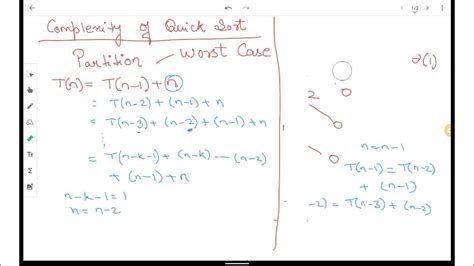 1/3
Complexity of Quick Sort
Partition — Worst Case
T(n) = T(n-1) + n
= T(n-2) + (n-1) + n
= T(n-3) + (n-2) + (n-1) + n
= T(n-k-1) + (n-k) --- (n-2)
+ (n-1) + n
n-k-1 = 1
n = n-2
2
n = n-1
T(n-1) = T(n-2)
+ (n-1)
-2) = T(n-3) + (n-2)